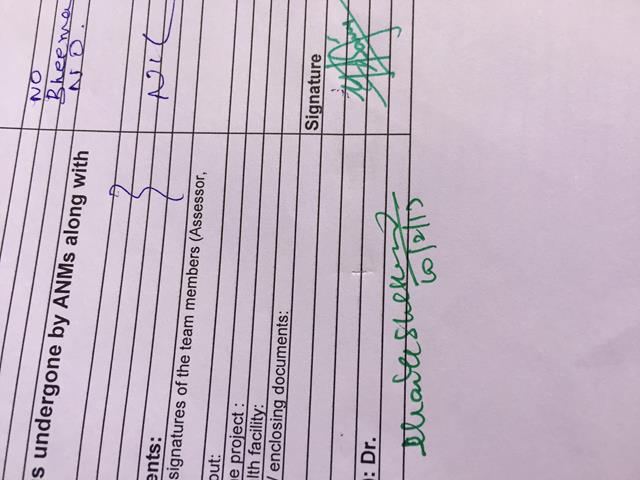 NO
Bheema
s undergone by ANMs along with
NO.
NIL
ents:
signatures of the team members (Assessor,
out:
e project :
lth facility:
/ enclosing documents:
Signature
): Dr.